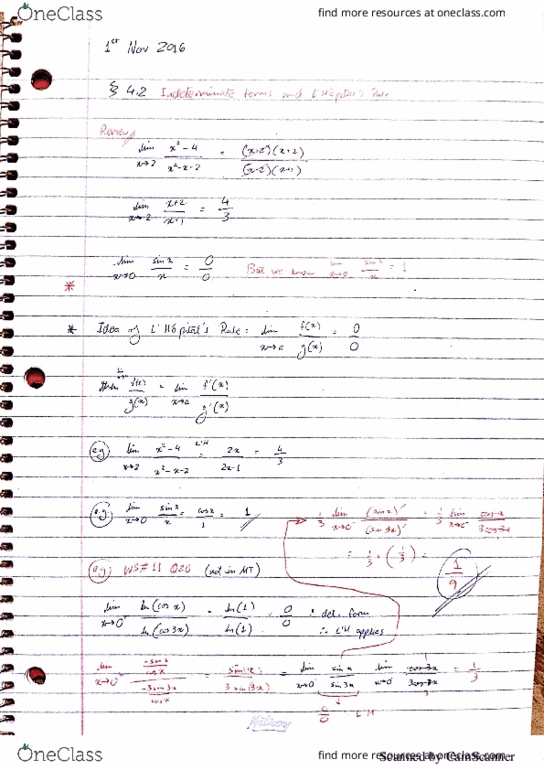 OneClass find more resources at oneclass.com
1st Nov 2016
§ 4.2 Indeterminate forms and L'Hôpital's Rule
Review
lim x→2 x²-4 / x²-x-2 = (x-2)(x+2) / (x-2)(x+1)
lim x→2 x+2 / x+1 = 4/3
lim x→0 sin x / x = 0/0 But we know lim x→0 sin x / x = 1
*
* Idea of L'Hôpital's Rule: lim x→a f(x)/g(x) = 0/0
then f(x)/g(x) = lim x→a f'(x)/g'(x)
eg lim x→2 x²-4 / x²-x-2 L'H = 2x / 2x-1 = 4/3
eg lim x→0 sin x / x = cos x / 1 = 1
1/3 lim x→0 (sin x)' / (sin 3x)' = 1/3 lim x→0 cos x / 3 cos 3x
= 1/3 · (1/3) = 1/9
eg: WS# 11 (not in MT)
lim x→0 ln(cos x) / ln(cos 3x) = ln(1) / ln(1) = 0/0 form
∴ L'H applies
lim x→0 -sin x / cos x / -3 sin 3x = sin x / 3 sin(3x) = lim x→0 sin x / sin 3x lim x→0 cos 3x / = 1/3
0/0 L'H
OneClass find more resources at oneclass.com
Scanned by CamScanner